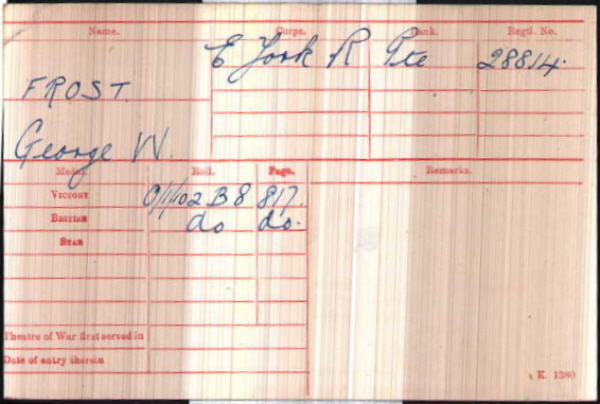 Name. Corps. Rank. Regtl. No.
E York R Pte 28814.
FROST.
George W.
Medal. Roll. Page. Remarks.
Victory O/1/102 B8 817.
British do do.
Star
Theatre of War first served in
Date of entry therein
K. 1380